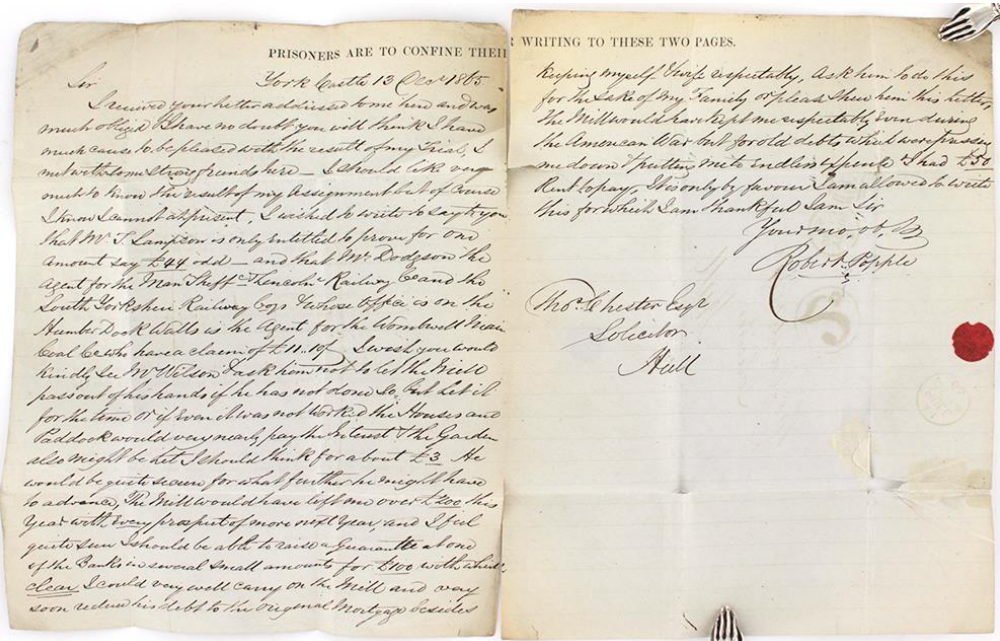 PRISONERS ARE TO CONFINE THEIR WRITING TO THESE TWO PAGES.
York Castle 13 Decr 1865
Sir
I received your letter addressed to me here and was
much obliged I have no doubt you will think I have
much cause to be pleased with the result of my Trial, I
met with some strong friends here — I should like very
much to know the result of my Assignment but of Course
I know I cannot at present, I wished to write to say to you
that Mr. T. Sampson is only entitled to prove for one
amount say £44 odd — and that Mr. Dodgson the
Agent for the Man Sheff & Lincoln Railway Co and the
South Yorkshire Railway Coys & whose office is on the
Humber Dock Walls is the Agent for the Wombwell Main
Coal Co who have a claim of £11..10/ I wish you would
kindly See Mr Wilson & ask him not to let the Mill
pass out of his hands if he has not done so, but let it
for the time or if even it was not worked the Houses and
Paddock would very nearly pay the Interest & the Garden
also might be let I should think for about £3 He
would be quite secure for what further he might have
to advance, The Mill would have left me over £200 this
Year with every prospect of more next Year, and I feel
quite sure I should be able to raise a Guarantee at one
of the Banks in several small amounts for £100 with which
clear I could very well carry on the Mill and very
soon reduce his debt to the original Mortgage besides
keeping myself & wife respectably, ask him to do this
for the Sake of my Family or please shew him this letter,
The Mill would have kept me respectably even during
the American War but for old debts which were pressing
me down & putting me to endless expense & I had £50
Rent to pay, It is only by favour I am allowed to write
this for which I am thankful I am Sir
Your mo. ob. S
Robert Popple
Thos. Chester Esqr
Solicitor
Hull